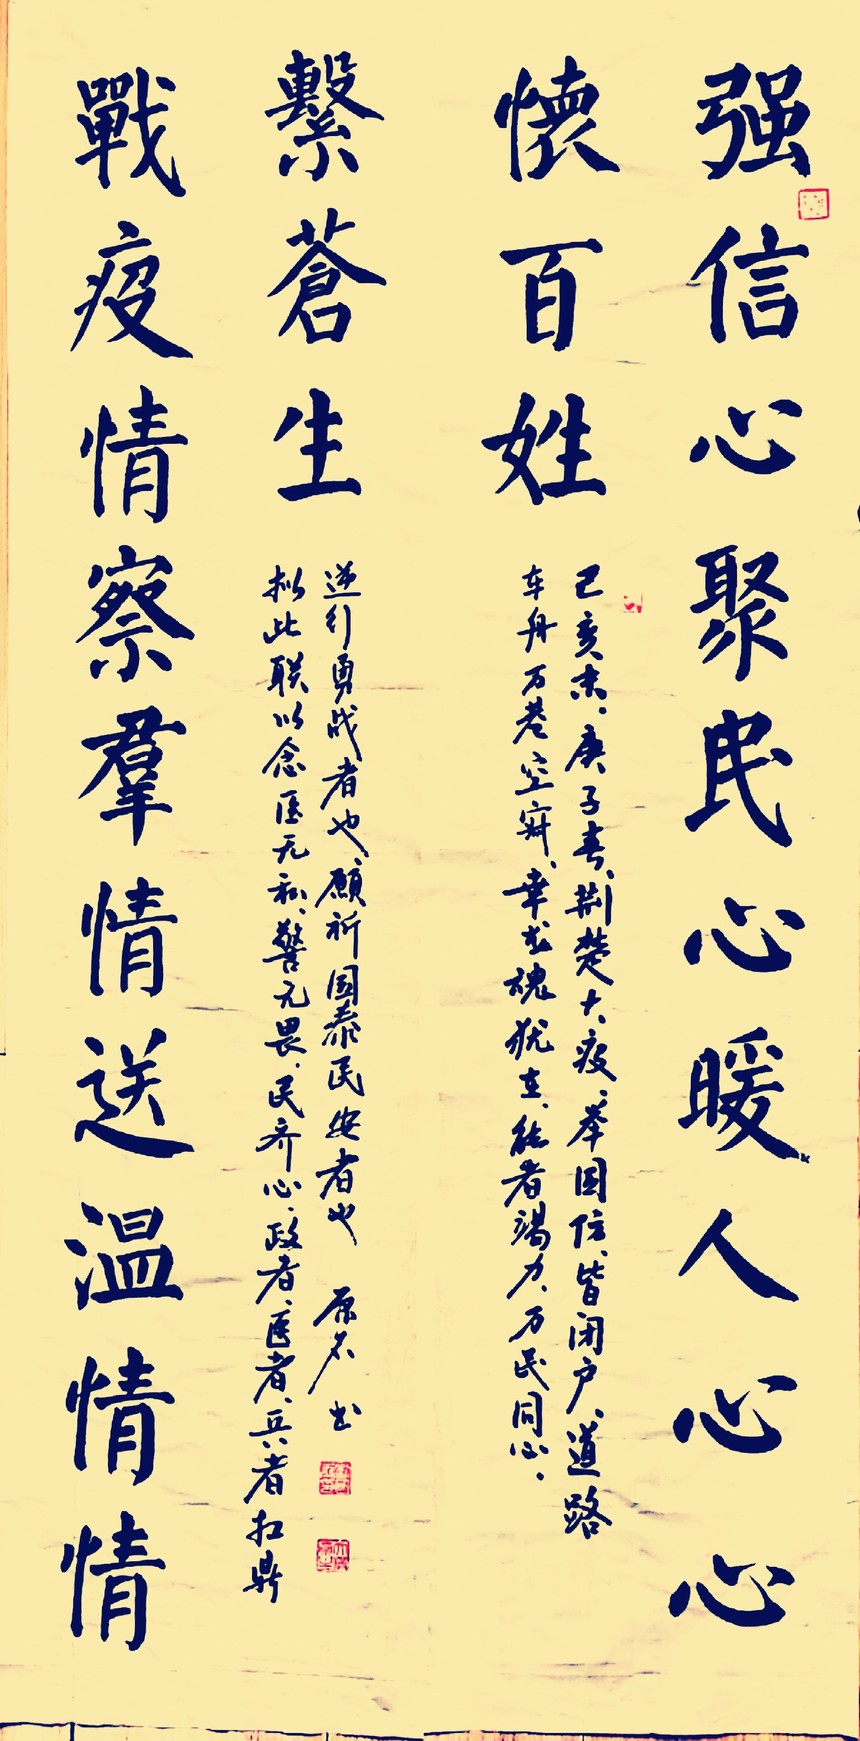 强信心聚民心暖人心心
懷百姓
己亥末、庚子春、荆楚大疫、举国防、皆闭户、道路
车舟万巷空寂、幸龙魂犹在、能者竭力、万民同心、
戰疫情察羣情送温情情
繫蒼生
拟此联以念医无私、警无畏、民齐心、政者、医者、兵者扛鼎
逆行勇战者也、願祈国泰民安者也 原名 书